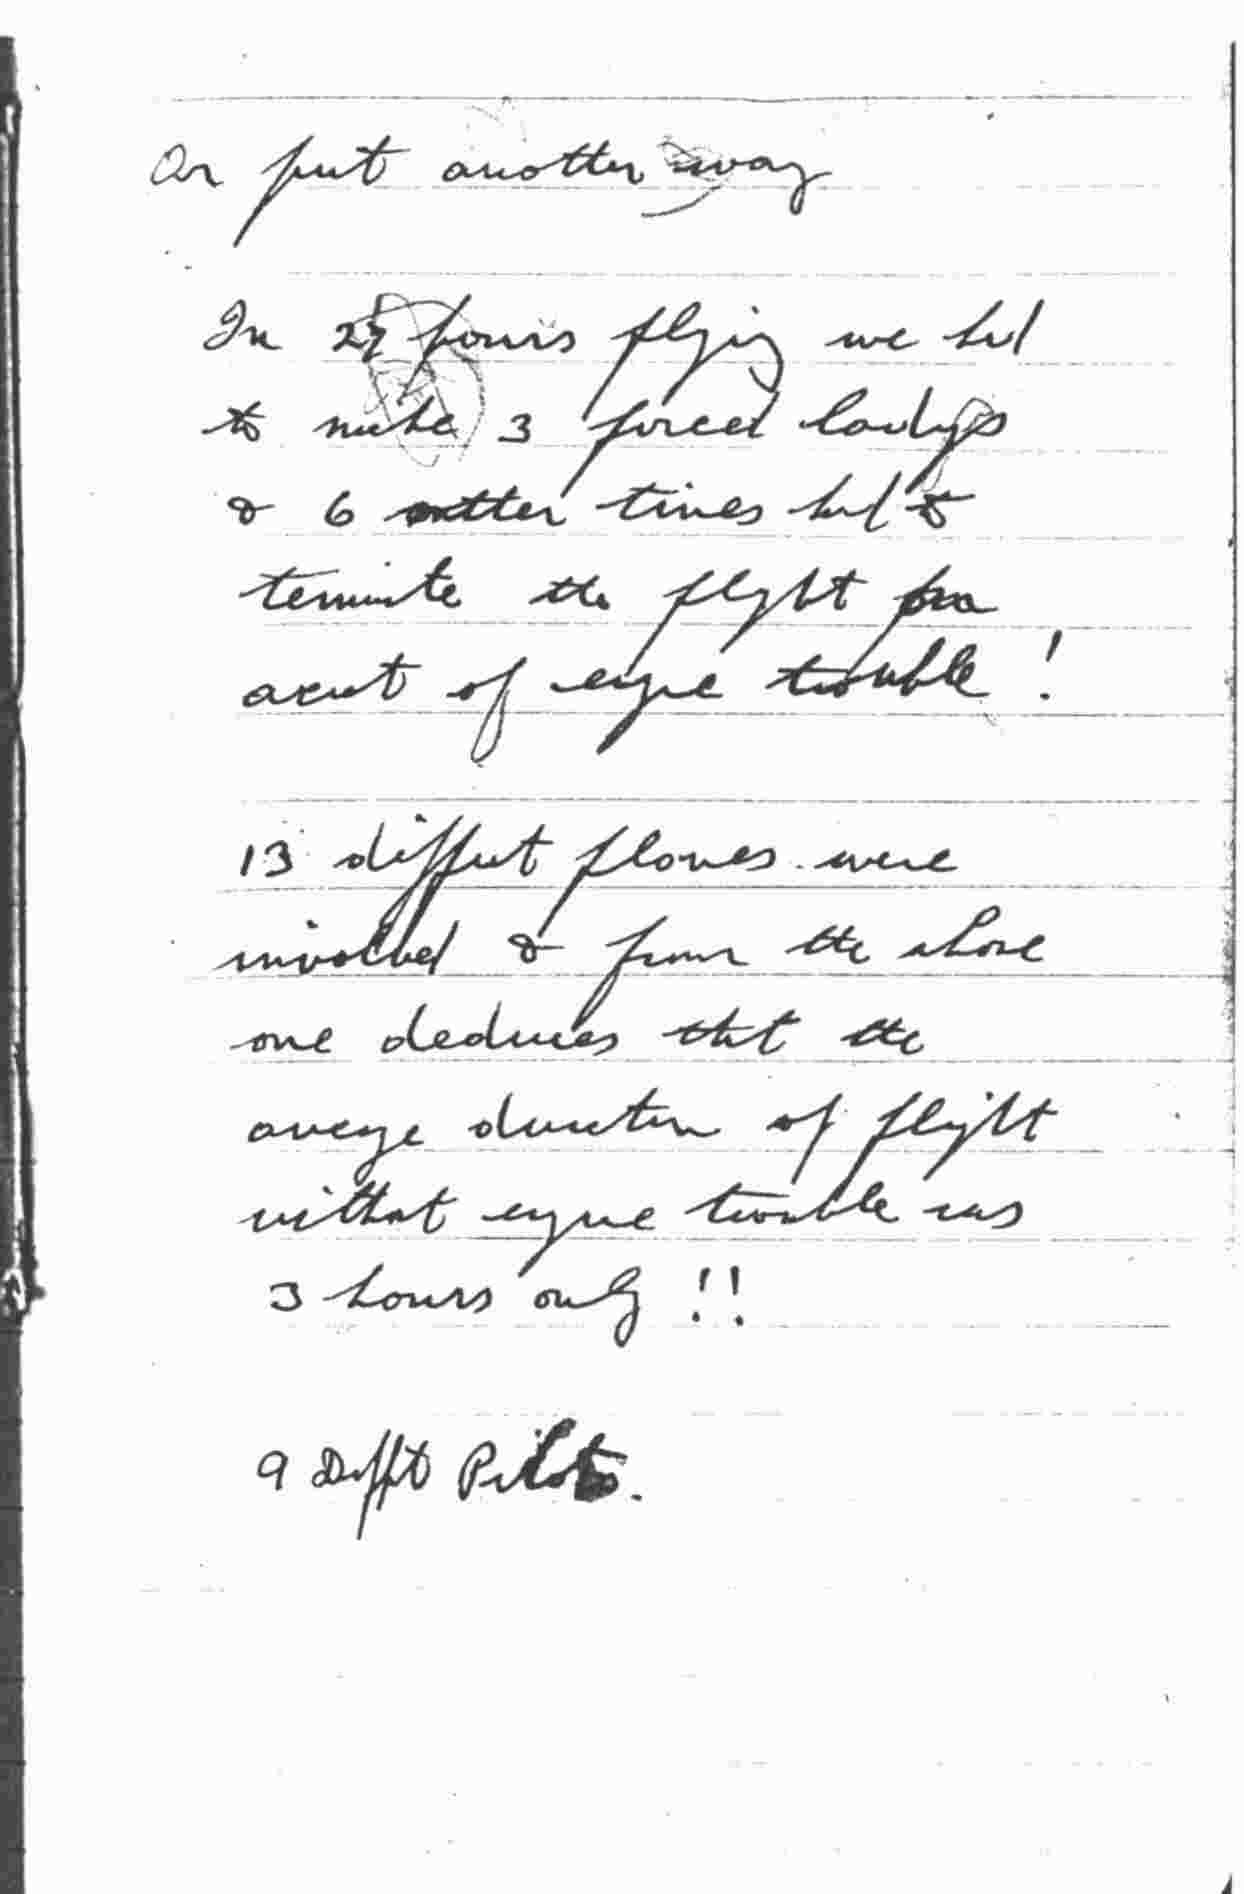 Or put another way
In 27 hours flying we had
to make 3 forced landgs
& 6 other times had to
terminate the flight on
acct of engne trouble!
13 diffrent planes were
involved & from the above
one deduces that the
average duration of flight
without engne trouble was
3 hours only!!
9 Difft Pilots.